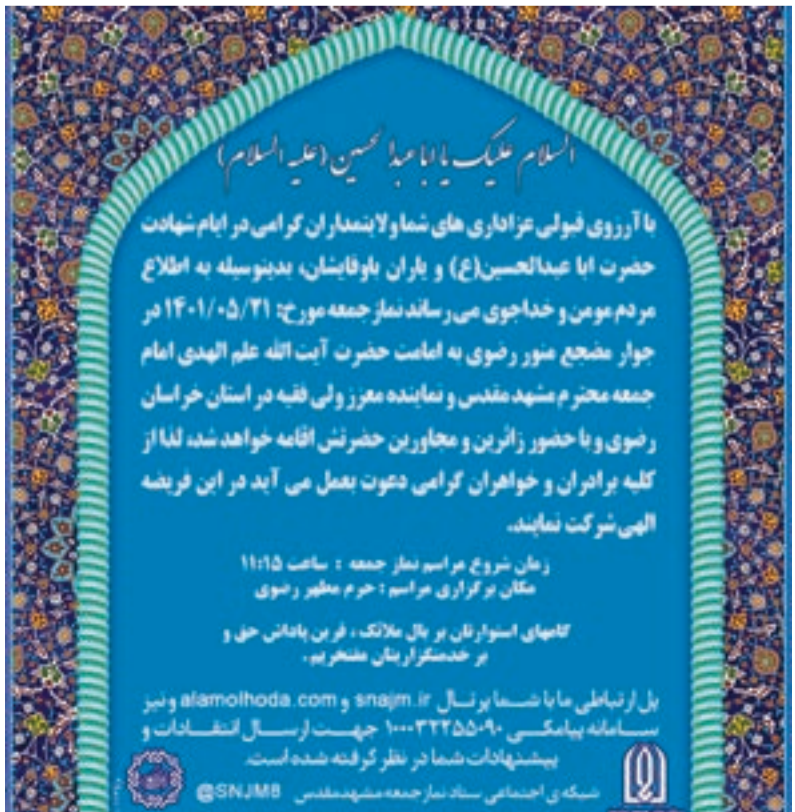 السلام علیک یا ابا عبدالحسین (علیه السلام)
با آرزوی قبولی عزاداری های شما ولایتمداران گرامی در ایام شهادت
حضرت ابا عبدالحسین(ع) و یاران باوفایشان، بدینوسیله به اطلاع
مردم مومن و خداجوی می رساند نماز جمعه مورخ: ۱۴۰۱/۰۵/۲۱ در
جوار مضجع منور رضوی به امامت حضرت آیت الله علم الهدی امام
جمعه محترم مشهد مقدس و نماینده معزز ولی فقیه در استان خراسان
رضوی و با حضور زائرین و مجاورین حضرتش اقامه خواهد شد، لذا از
کلیه برادران و خواهران گرامی دعوت بعمل می آید در این فریضه
الهی شرکت نمایند.
زمان شروع مراسم نماز جمعه : ساعت ۱۱:۱۵
مکان برگزاری مراسم : حرم مطهر رضوی
گامهای استوارتان بر بال ملائک ، قرین پاداش حق و
بر خدمتگزاریتان مفتخریم .
پل ارتباطی ما با شما پرتال snajm.ir و alamolhoda.com و نیز
سامانه پیامکی ۱۰۰۰۳۲۲۵۵۰۹۰ جهت ارسال انتقادات و
پیشنهادات شما در نظر گرفته شده است.
شبکه ی اجتماعی ستاد نماز جمعه مشهد مقدس @SNJM8